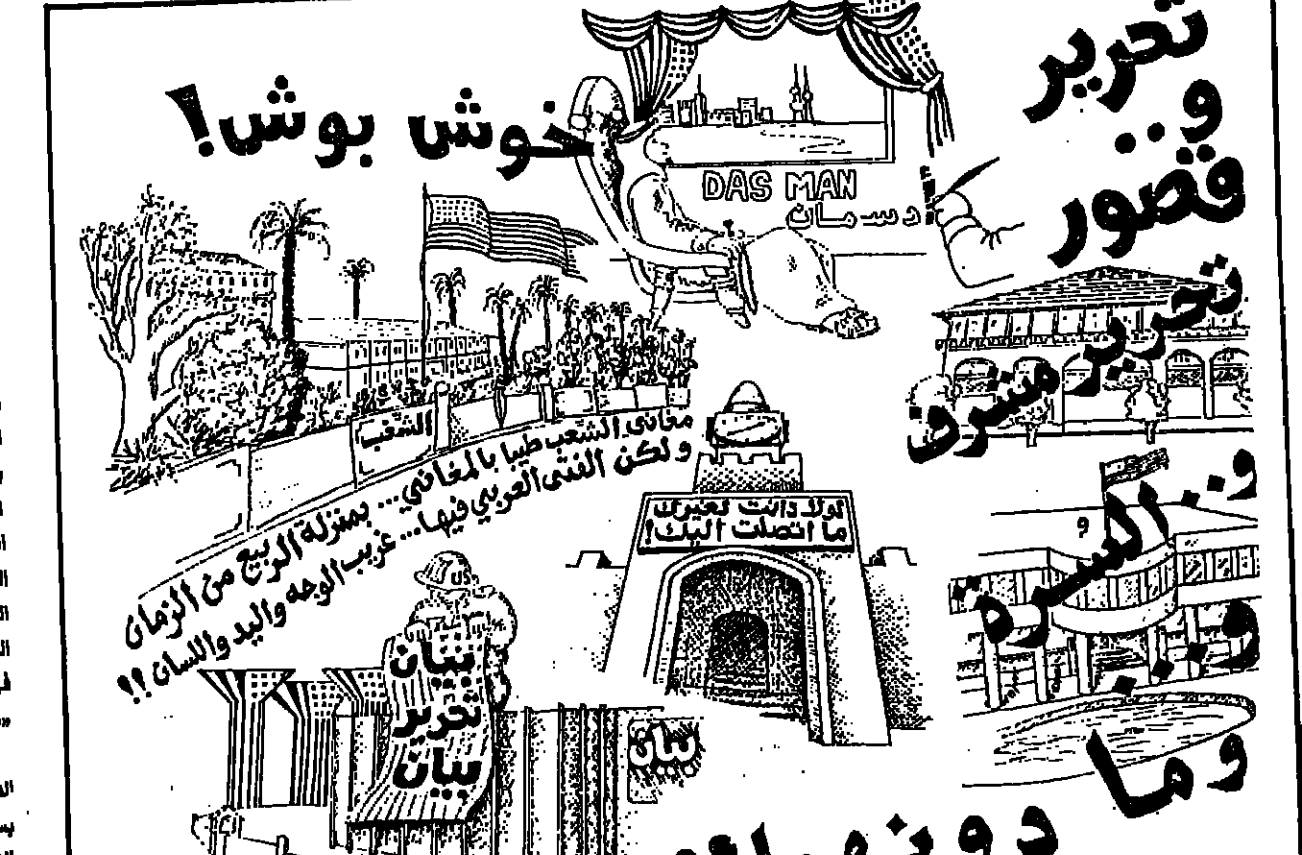 تحرير
و..
قصور
خوش بوش!
DAS MAN
دسمان
تحرير مشرف
و.. المسرة
و..
وما
الشعب
مغاني الشعب طيبا بالمغاني... بمنزلة الربيع من الزمان
ولكن الفتى العربي فيها... غريب الوجه واليد واللسان؟؟
لولا دانت لغيرك
ما اتصلت اليك!
US
بيان
تحرير
بيان
بيان